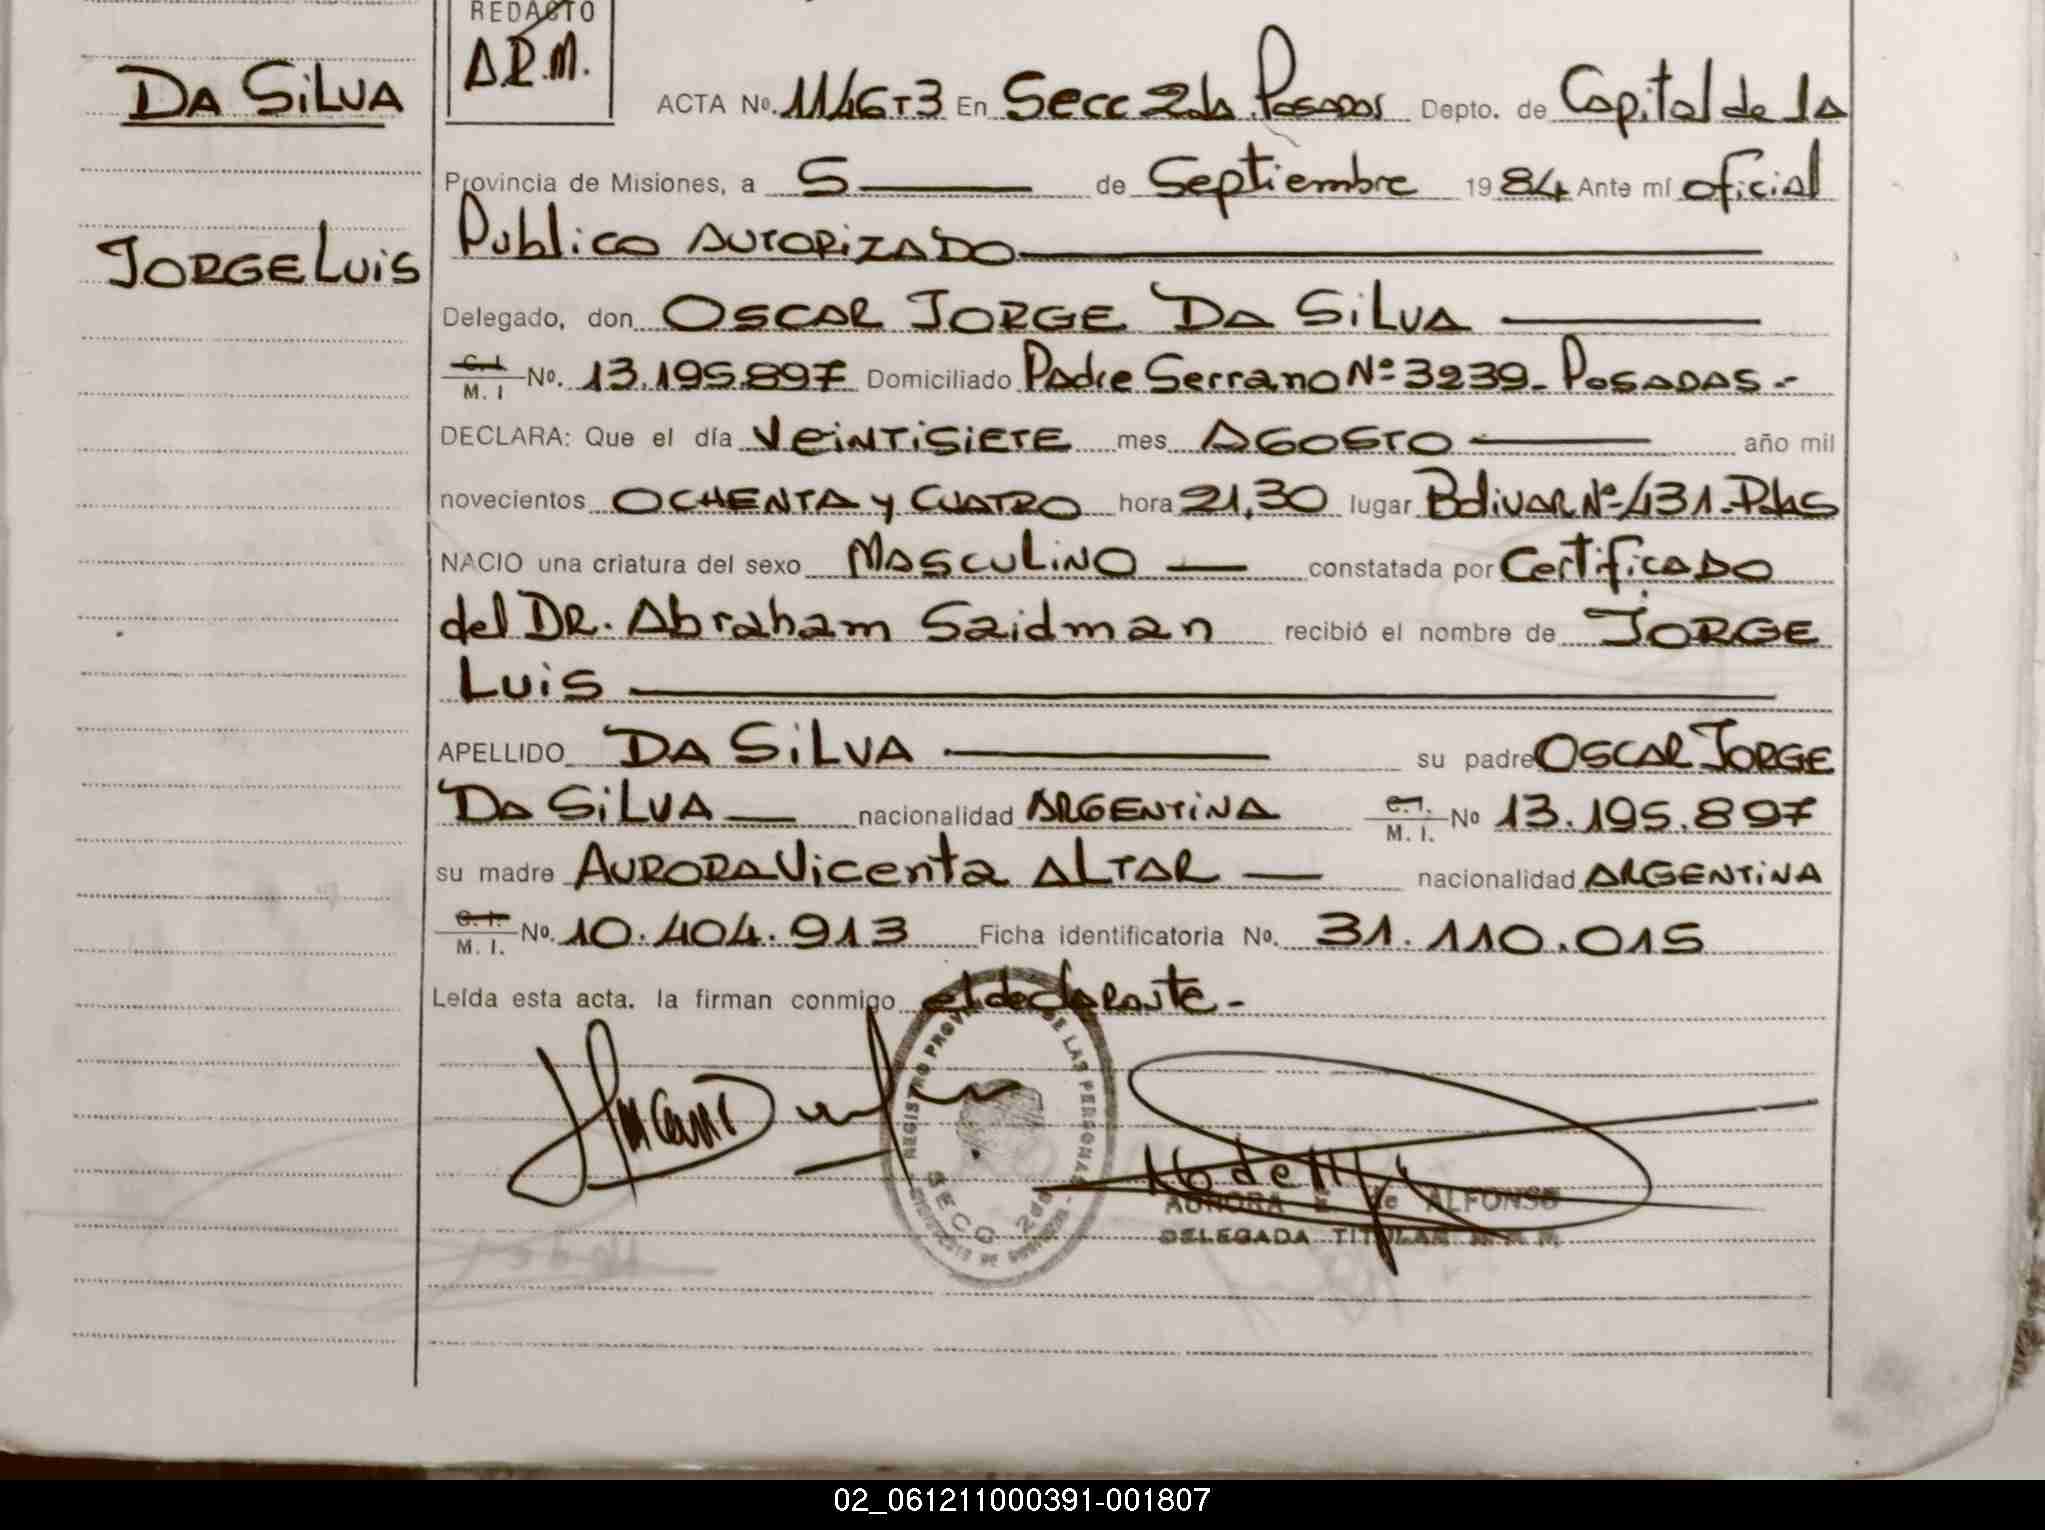 REDACTO
A.R.M.
DA SILVA
JORGE LUIS
ACTA Nº. 1146T3 En Secc 2da Posadas Depto. de Capital de la
Provincia de Misiones, a 5 de Septiembre 1984 Ante mí oficial
Publico AUTORIZADO
Delegado, don OSCAR JORGE DA SILVA
C. I. M. I Nº. 13.195.897 Domiciliado Padre Serrano Nº 3239- POSADAS.-
DECLARA: Que el día VEINTISIETE mes AGOSTO año mil
novecientos OCHENTA y CUATRO hora 21,30 lugar Bolivar Nº 431-Pdas
NACIO una criatura del sexo MASCULINO constatada por Certificado
del DR. Abraham Saidman recibió el nombre de JORGE
LUIS
APELLIDO DA SILVA su padre OSCAR JORGE
DA SILVA nacionalidad ARGENTINA C.I. M. I. Nº 13.195.897
su madre AURORA Vicenta ALTAR nacionalidad ARGENTINA
C. I. M. I. Nº. 10.404.913 Ficha identificatoria Nº. 31.110.015
Leída esta acta. la firman conmigo el declarante-
REGISTRO PROV DE LAS PERSONAS
SECC 2da
AURORA E. de ALFONSO
DELEGADA TITULAR
02_061211000391-001807